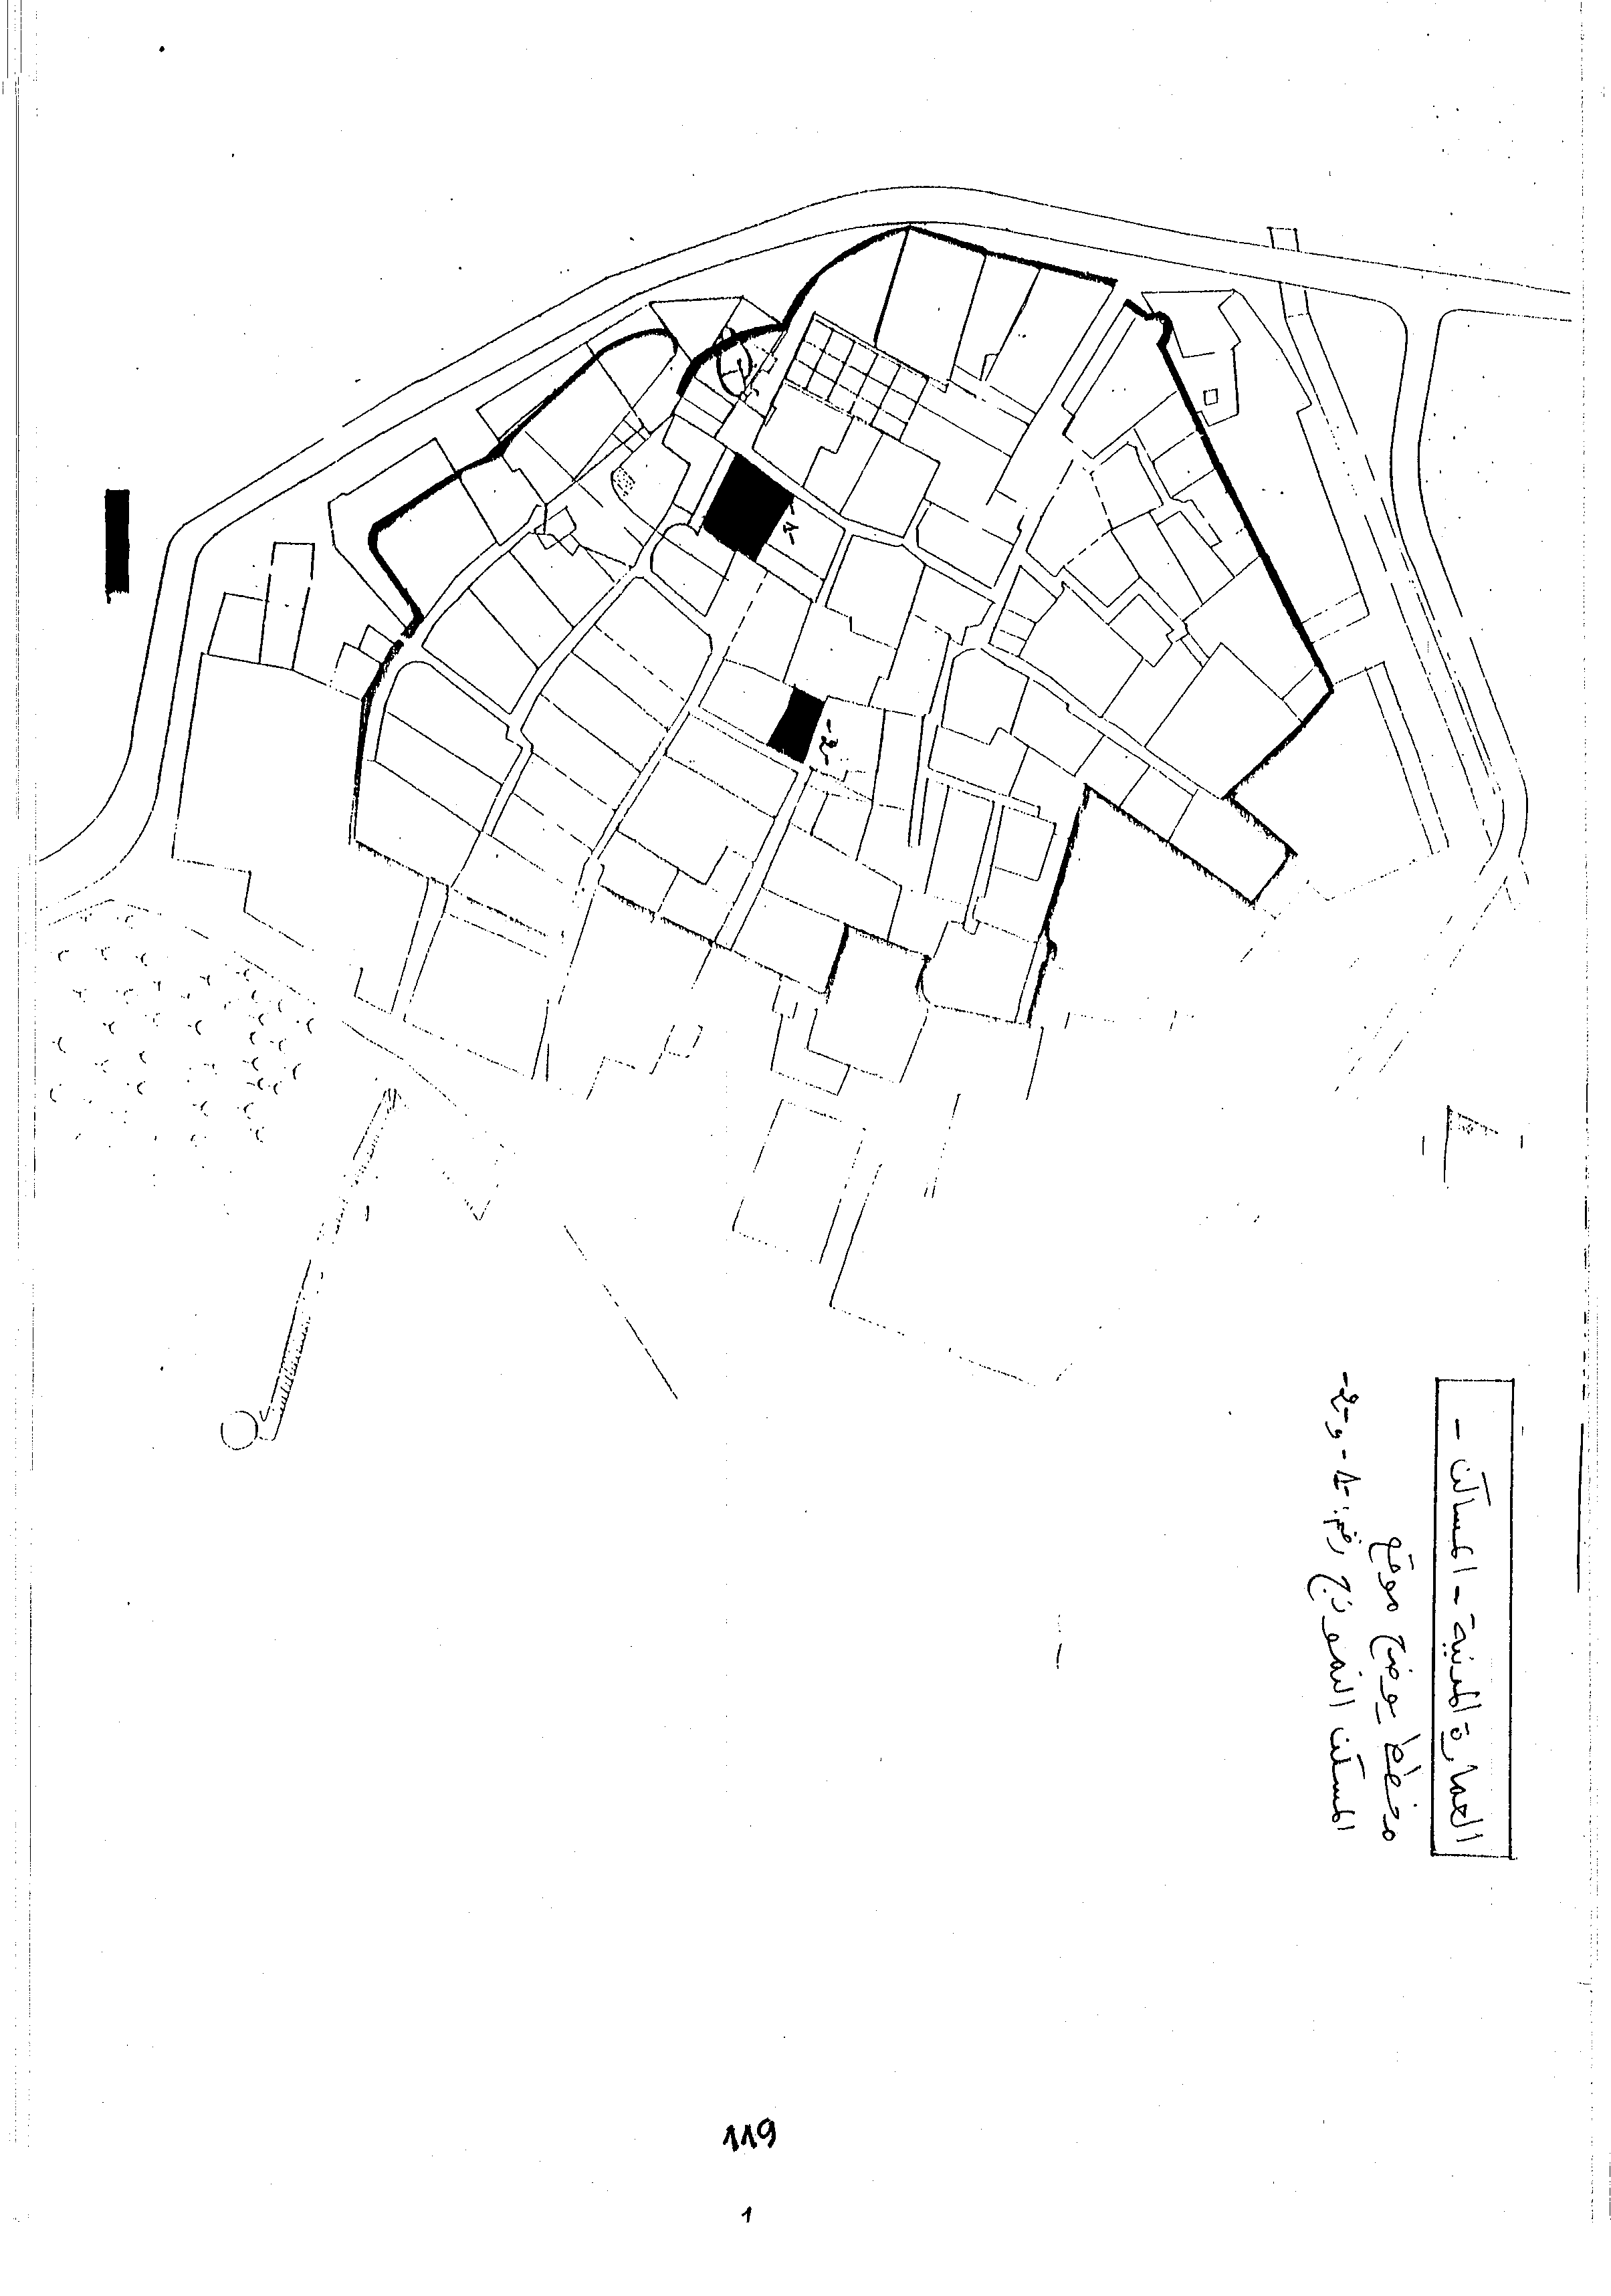 العمارة المدنية - المساكن -
مخطط يوضح موقع
المسكن النموذج رقم: -1- و -2-
-1-
-2-
119
1